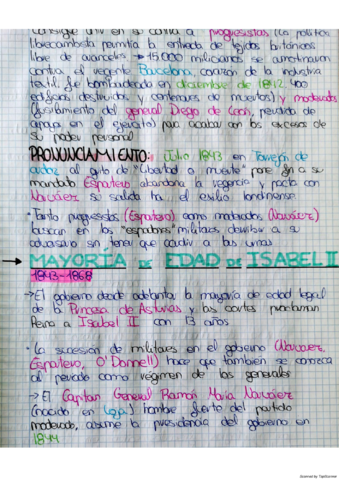 consigue unir en su contra a progresistas (la política
librecambista permitía la entrada de tejidos británicos
libre de aranceles → 15.000 milicianos se amotinaron
contra el regente Barcelona, corazón de la industria
textil, fue bombardeada en diciembre de 1842 400
edificios destruidos y centenares de muertos) y moderados
(fusilamiento del general Diego de León, pérdida de
apoyos en el ejército) para acabar con los excesos de
su poder personal
PRONUNCIAMIENTO: Julio 1843 en Torrejón de
Ardoz al grito de "libertad o muerte" pone fin a su
mandato Espartero abandona la regencia y pacta con
Narváez su salida al exilio londinense
• Tanto progresistas (Espartero) como moderados (Narváez)
buscan en los "espadones" militares derribar a su
adversario sin tener que acudir a las urnas
→ MAYORÍA DE EDAD DE ISABEL II
1843-1868
→ El gobierno decide adelantar la mayoría de edad legal
de la Princesa de Asturias y las cortes proclaman
Reina a Isabel II con 13 años
• La sucesión de militares en el gobierno (Narváez,
Espartero, O'Donnell) hace que también se conozca
al periodo como régimen de los generales
→ El Capitán General Ramón María Narváez
(nacido en Loja) hombre fuerte del partido
moderado, asume la presidencia del gobierno en
1844
Scanned by TapScanner